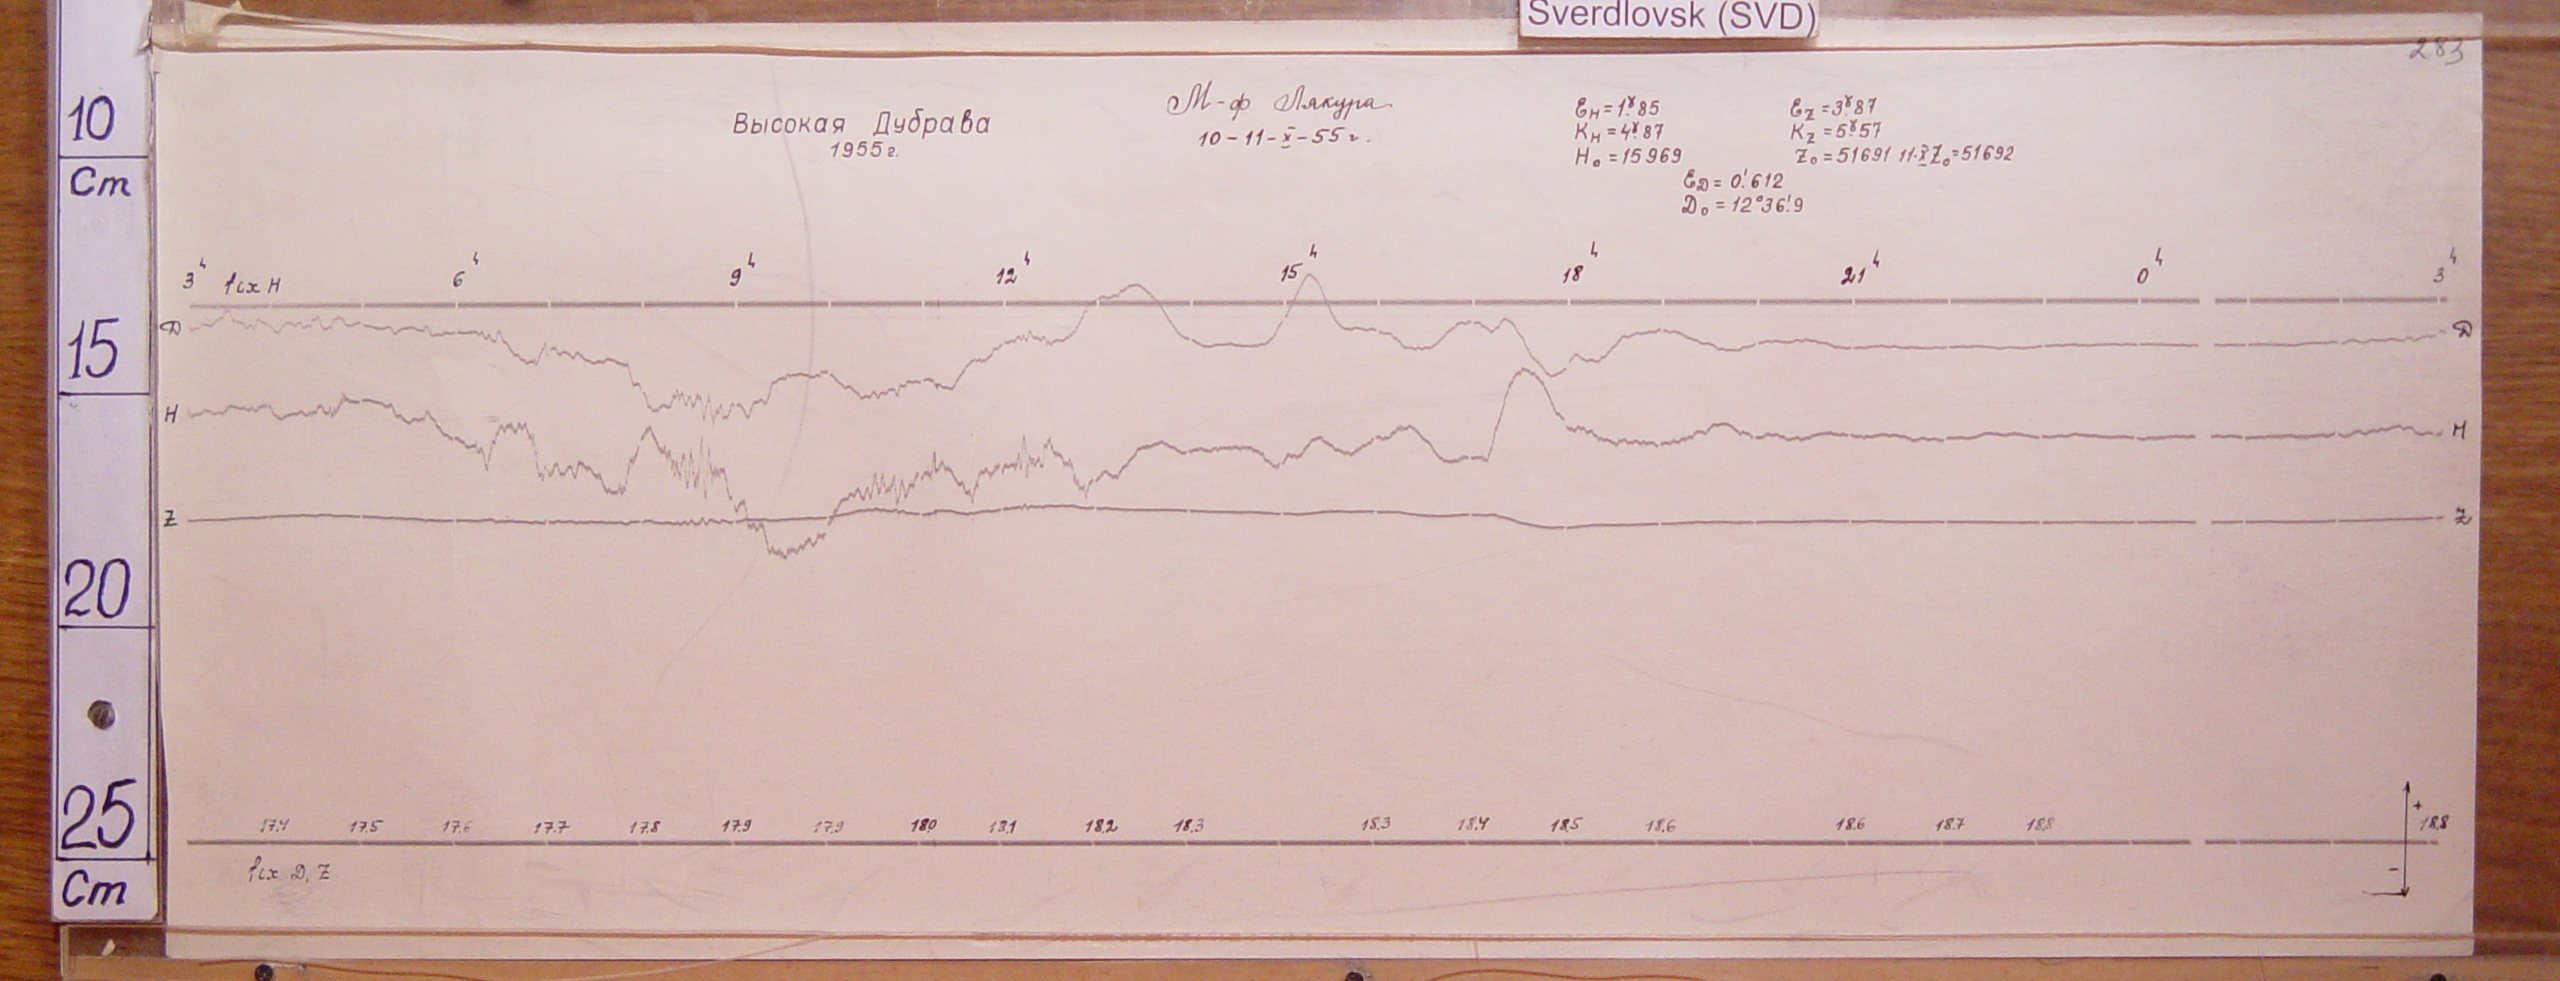 Sverdlovsk (SVD)
283
10
Cm
15
20
25
Cm
Высокая Дубрава
1955 г.
М-ф Лякура
10-11-X-55 г.
Ɛн = 1ᵞ.85
Kн = 4ᵞ.87
H₀ = 15969
Ɛz = 3ᵞ.87
Kz = 5ᵞ.57
Z₀ = 51691 11-X Z₀ = 51692
ƐD = 0'.612
D₀ = 12°36'.9
3ʰ 6ʰ 9ʰ 12ʰ 15ʰ 18ʰ 21ʰ 0ʰ 3ʰ
H
D D
H H
Z Z
17.4 17.5 17.6 17.7 17.8 17.9 17.9 18.0 18.1 18.2 18.3 18.3 18.4 18.5 18.6 18.6 18.7 18.8 18.8
+
-
D, Z